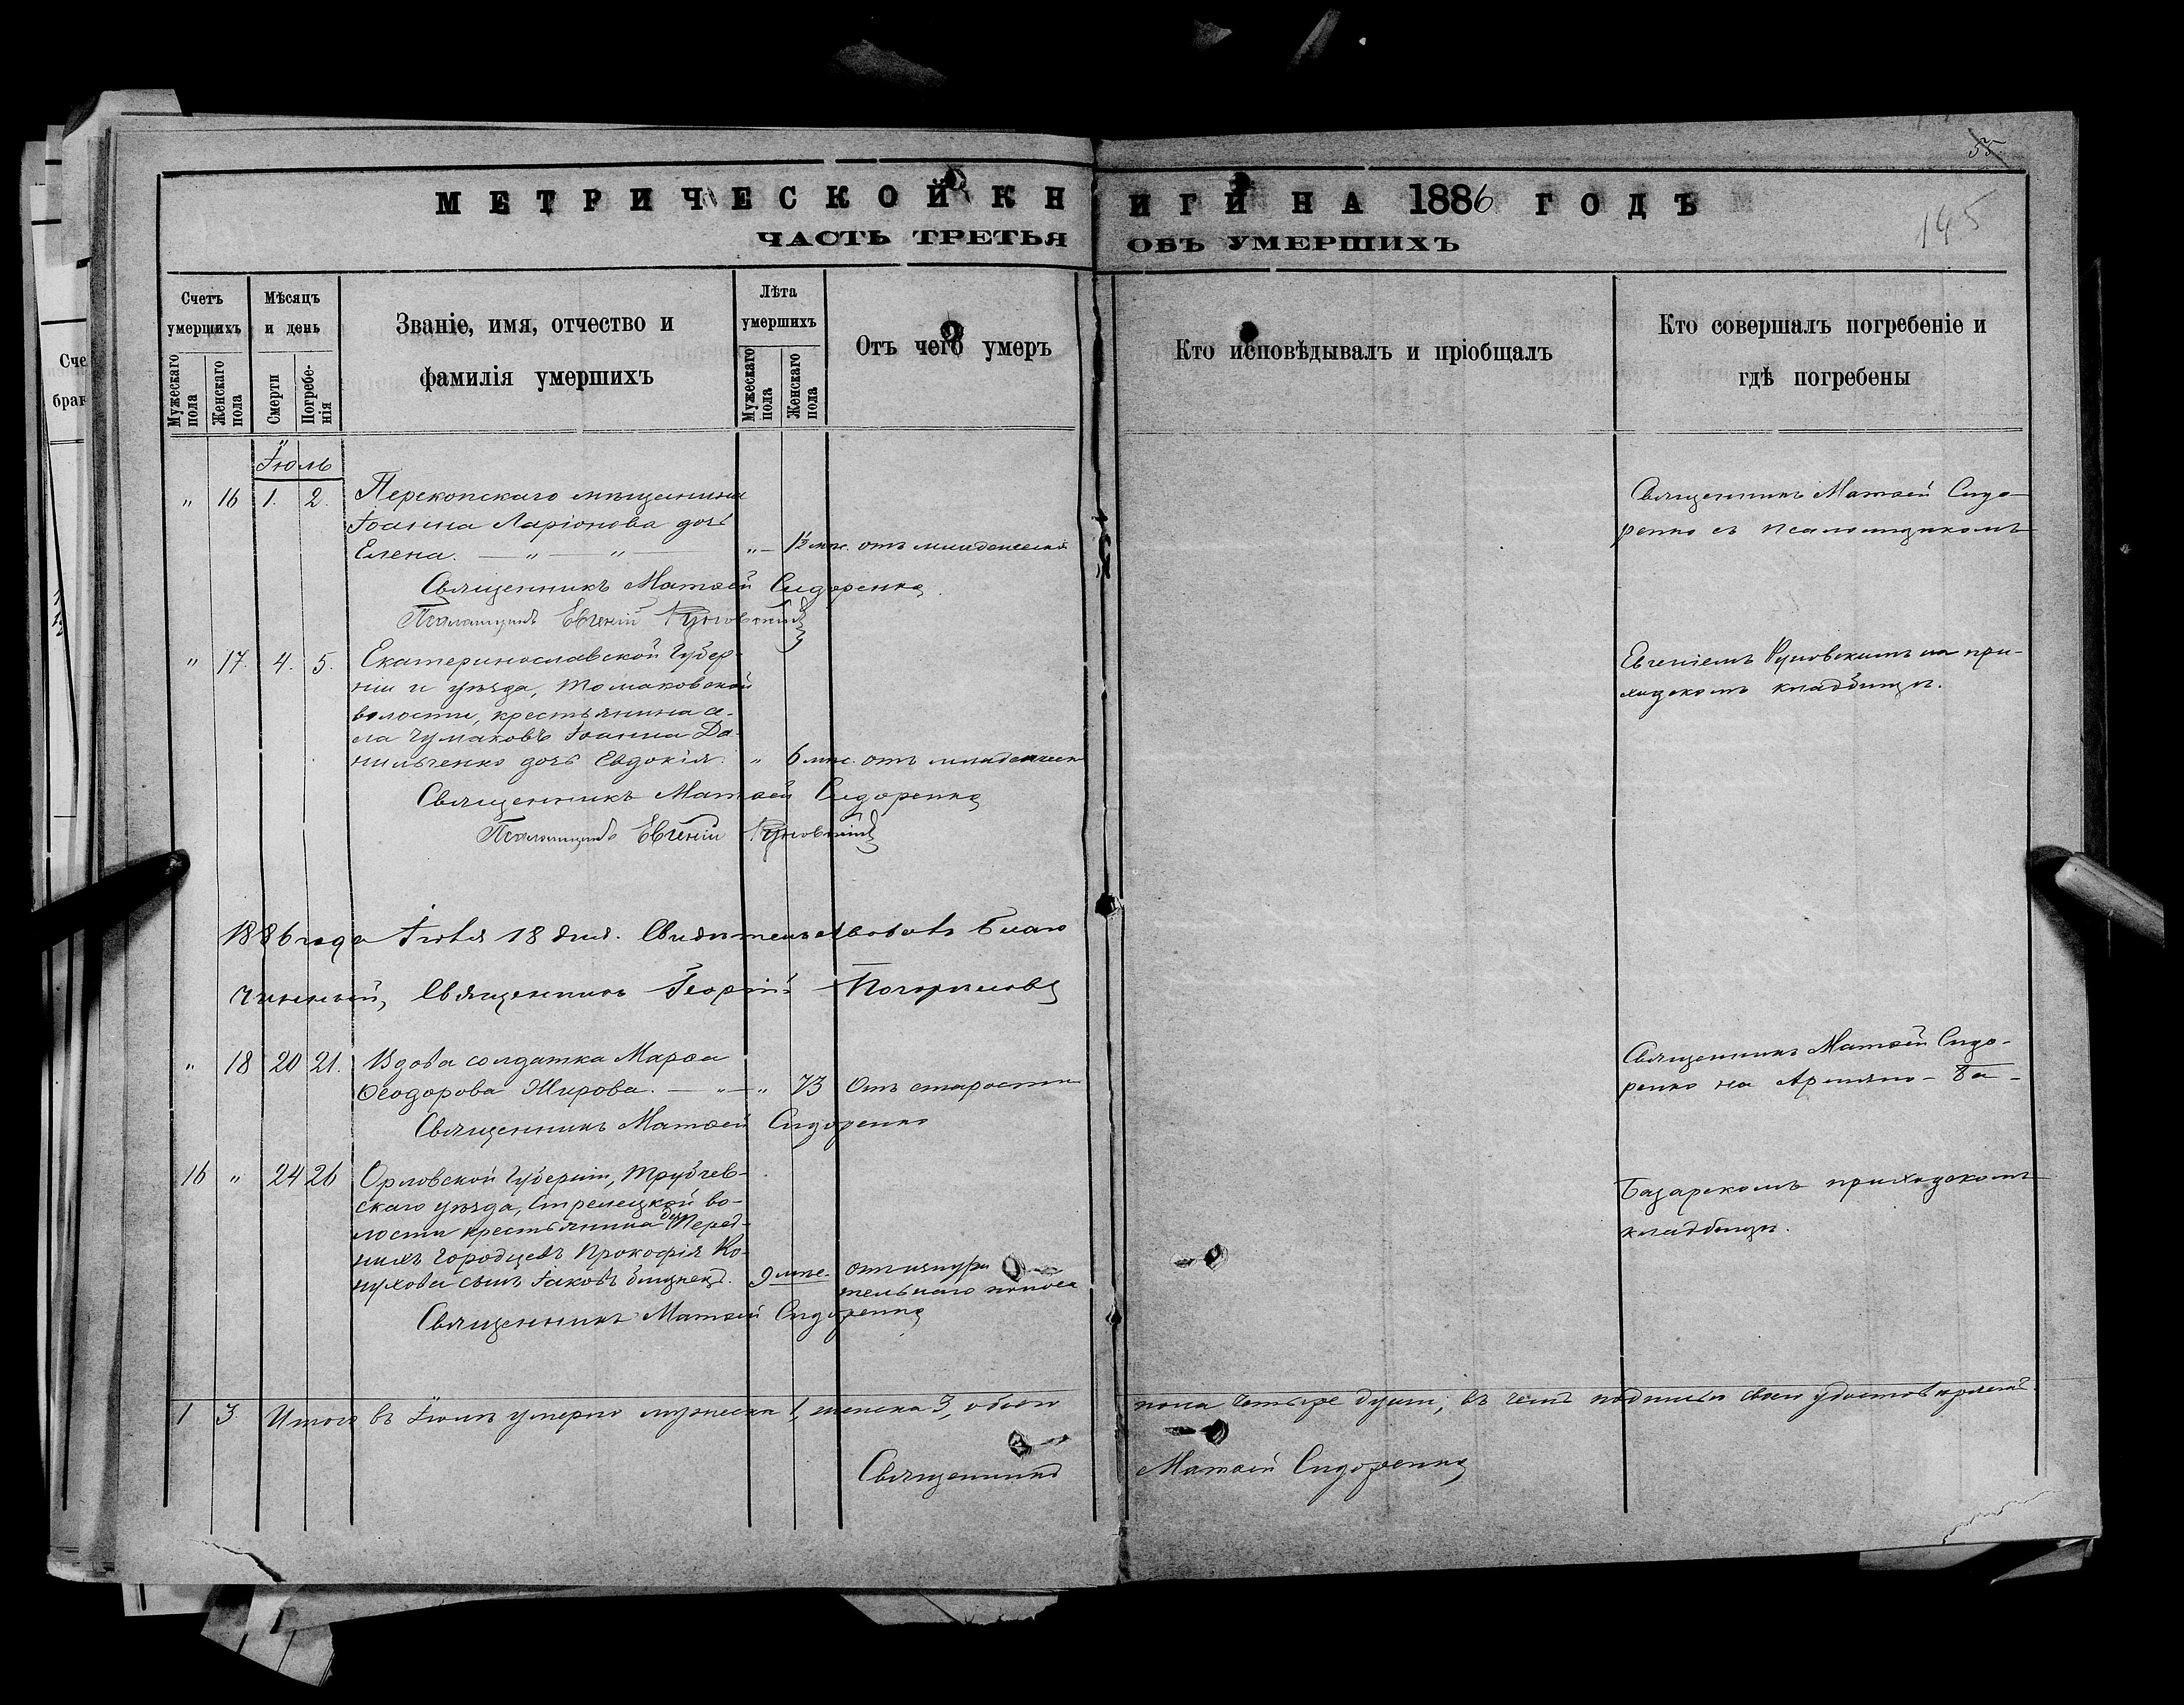 55
145
МЕТРИЧЕСКОЙ КНИГИ НА 1886 ГОДЪ
ЧАСТЬ ТРЕТЬЯ ОБЪ УМЕРШИХЪ
Счетъ умершихъ
Мужескаго пола
Женскаго пола
Мѣсяцъ и день
Смерти
Погребе-
нія
Званіе, имя, отчество и
фамилія умершихъ
Лѣта умершихъ
Мужескаго пола
Женскаго пола
Отъ чего умеръ
Кто исповѣдывалъ и пріобщалъ
Кто совершалъ погребеніе и
гдѣ погребены
Сче
брак
Іюль
" 16 1. 2. Перекопскаго мѣщанина
Іоанна Ларіонова дочь
Елена. — " — " — " — 1½ мѣс. отъ младенческой
Священникъ Матѳей Сидоренко
Псаломщикъ Евгеній Руновскій
Священникъ Матѳей Сидо-
ренко съ псаломщикомъ
" 17. 4. 5. Екатеринославской Губер-
ніи и уѣзда, Томаковской
волости, крестьянина се-
ла Чумаковъ Іоанна Да-
нильченко дочь Евдокія. " 6 мѣс. отъ младенческ
Священникъ Матѳей Сидоренко
Псаломщикъ Евгеній Руновскій
Евгеніемъ Руновскимъ на при-
ходскомъ кладбищѣ.
1886 года Іюля 18 дня. Свидѣтельствовалъ Благо
чинный, Священникъ Георгій
" 18 20 21. Вдова солдатка Марѳа
Ѳеодорова Жирова. — " — " 73 Отъ старости
Священникъ Матѳей Сидоренко
Священникъ Матѳей Сидо-
ренко на Армяно-Ба-
16 " 24 26 Орловской Губерніи, Трубчев-
скаго уѣзда, Стрелецкой во-
лости крестьянина дер. Перед-
нихъ Городцевъ Прокофія Ко-
нухова сынъ Іаковъ близнецъ. 9 мѣс. отъ изнури
тельнаго поноса
Священникъ Матѳей Сидоренко
Базарскомъ приходскомъ
кладбищѣ.
1 3 Итого въ Іюлѣ умерло мужеска 1, женска 3, обоего пола четыре души; въ чемъ подписью своею удостовѣряемъ.
Священникъ Матѳей Сидоренко